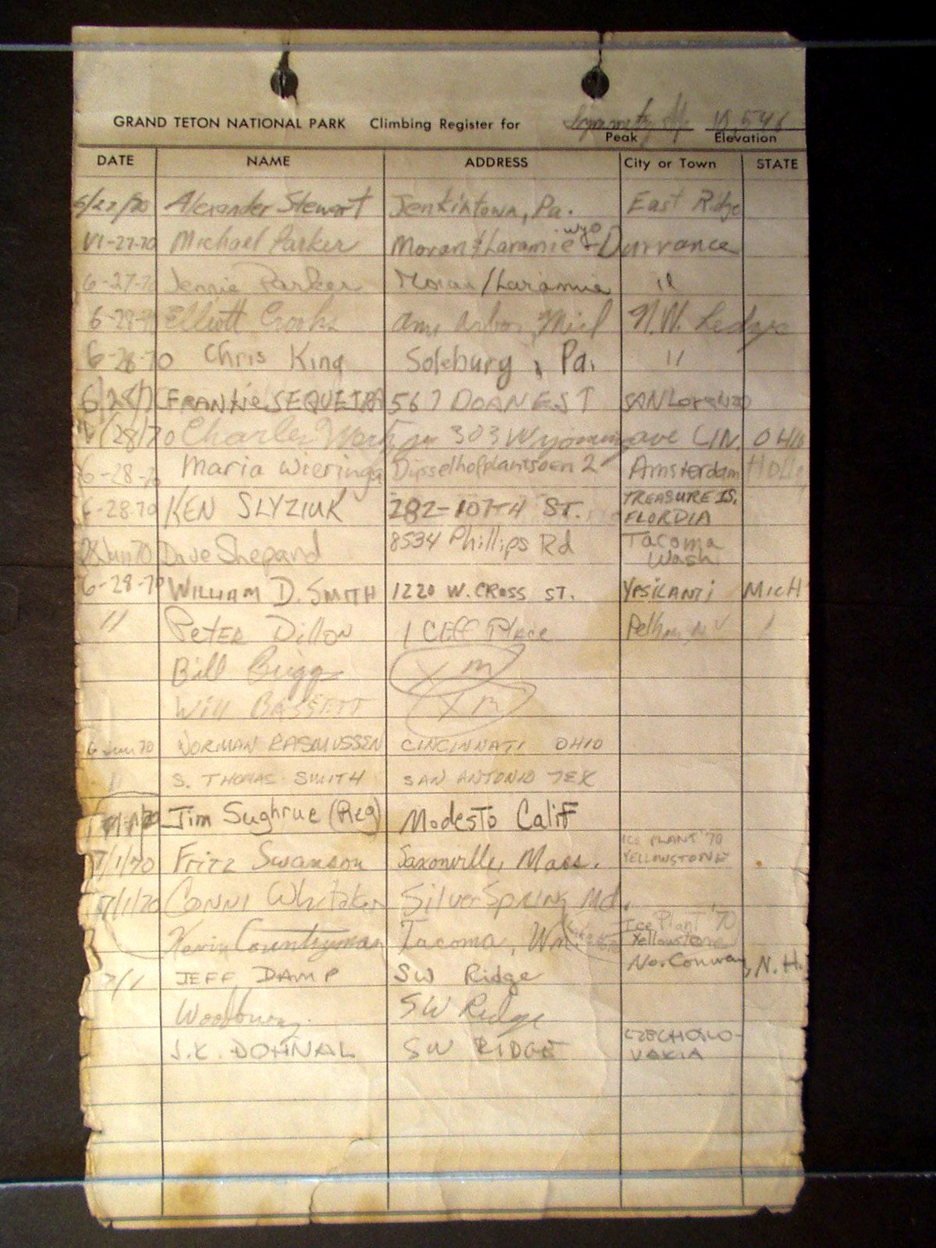 GRAND TETON NATIONAL PARK Climbing Register for Symmetry 10,546
Peak Elevation
DATE NAME ADDRESS City or Town STATE
6/27/70 Alexander Stewart Jenkintown, Pa. East Ridge
VI-27-70 Michael Parker Moran & Laramie Wyo - Durrance
6-27-70 Jennie Parker Moran/Laramie "
6-28-70 Elliott Crooks Ann Arbor, Mich N.W. Ledge
6-28-70 Chris King Soleburg, Pa. "
6/28/70 FRANKIE SEQUEIRA 567 DOANE ST SAN Lorenzo
6/28/70 Charles 303 Wyoming ave CIN. OHIO
6-28-70 Maria Wieringa Dysselhofplantsoen 2 Amsterdam Holl
6-28-70 KEN SLYZIUK 282-107TH ST. TREASURE IS. FLORDIA
28 Jun 70 Dave Shepard 8534 Phillips Rd Tacoma Wash
6-28-70 WILLIAM D. SMITH 1220 W. CROSS ST. YPSILANTI MICH
" PETER Dillon 1 Cliff Place Pelham, NY
Bill Briggs X M
Will BASSETT X M
Jun 70 NORMAN RASMUSSEN CINCINNATI OHIO
" S. THOMAS SMITH SAN ANTONIO TEX
7/1/70 Jim Sughrue (Reg) Modesto Calif
7/1/70 Fritz Swanson Saxonville, Mass. ICE PLANT '70 YELLOWSTONE
7/1/70 CONNI Whitaker Silver SPRING Md.
Kevin Countryman Tacoma, Wn. Ice Plant '70 Yellowstone
7/1 JEFF DAMP SW Ridge No. Conway, N.H.
Woodbury SW Ridge
J.K. DOHNAL SW RIDGE CZECHOSLO-VAKIA